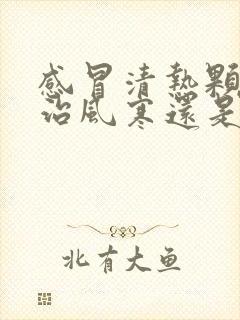 感冒清熱顆
治風寒還是
北有大鱼